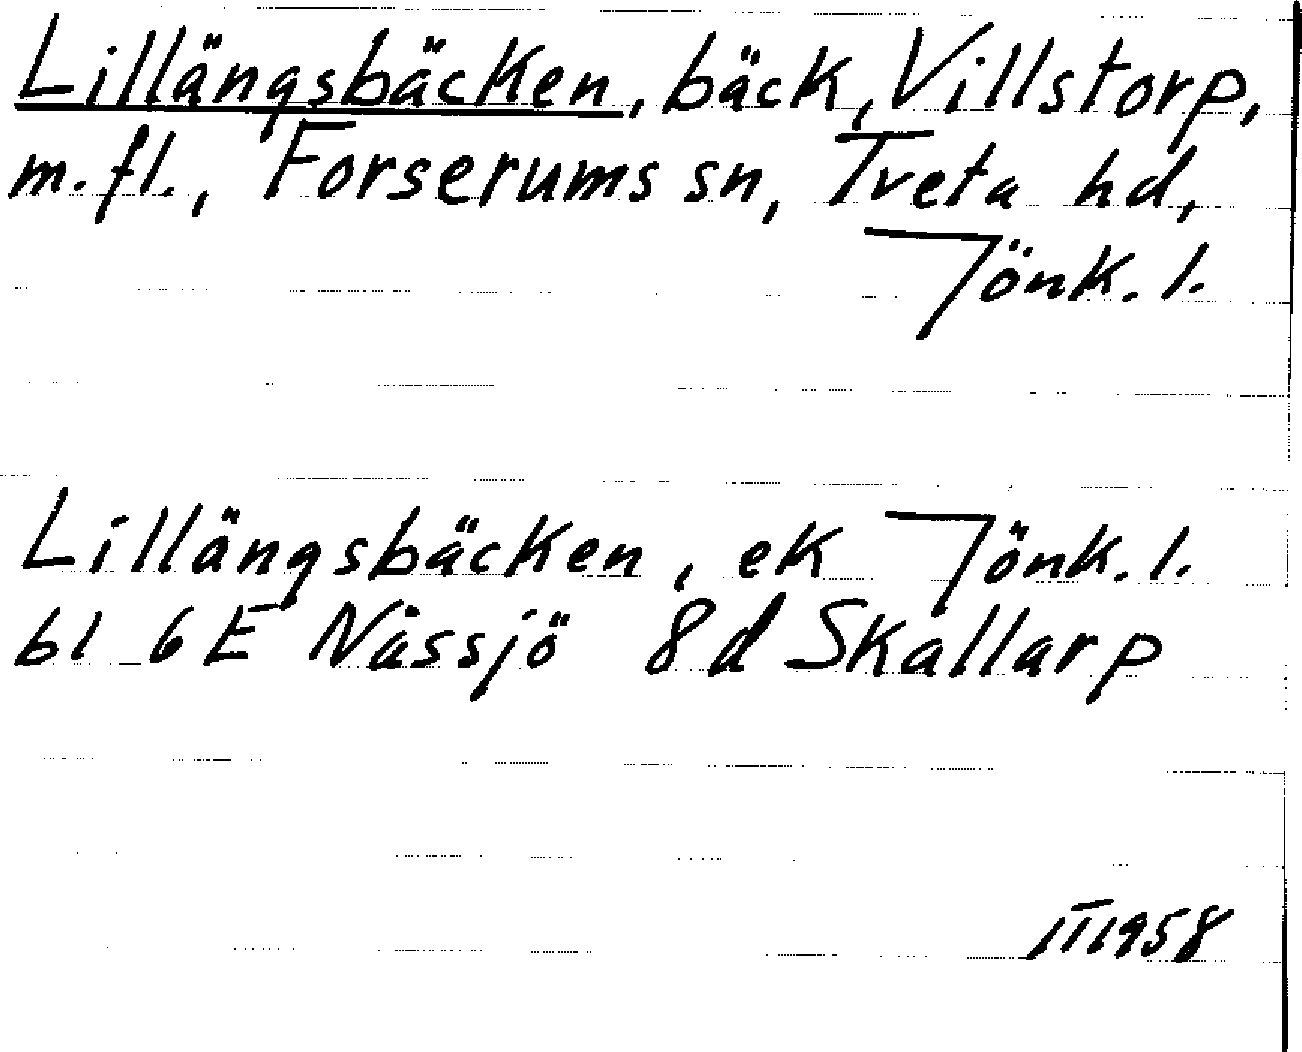 Lillängsbäcken, bäck, Villstorp,
m.fl., Forserums sn, Tveta hd,
Jönk. l.
Lillängsbäcken, ek Jönk. l.
bl 6E Nässjö 8d Skallarp